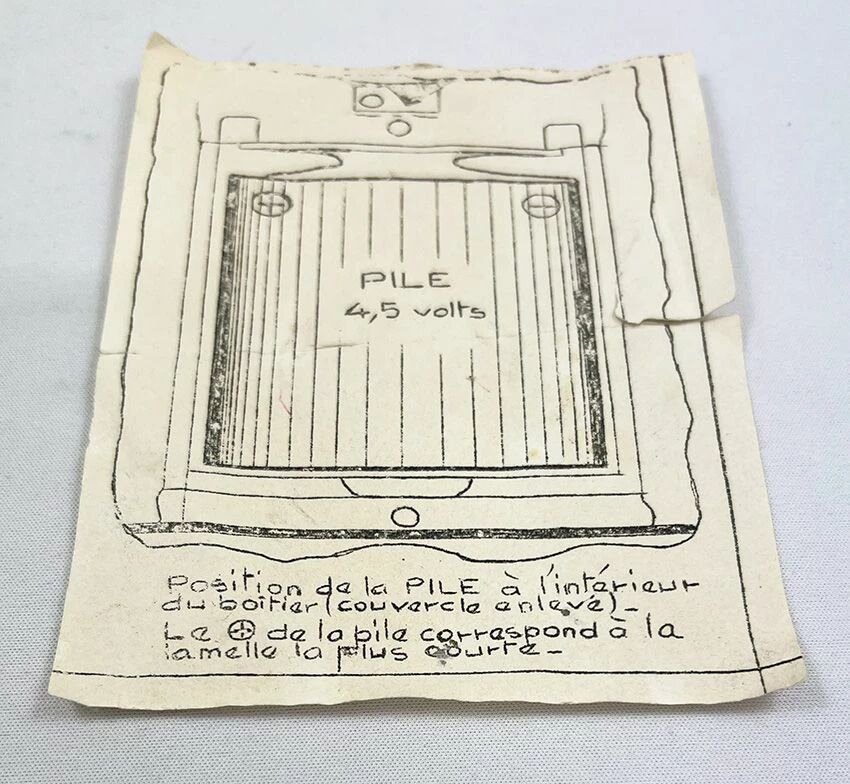 PILE
4,5 volts
Position de la PILE à l'intérieur
du boîtier (couvercle enlevé)_
Le ⊕ de la pile correspond à la
lamelle la plus courte_